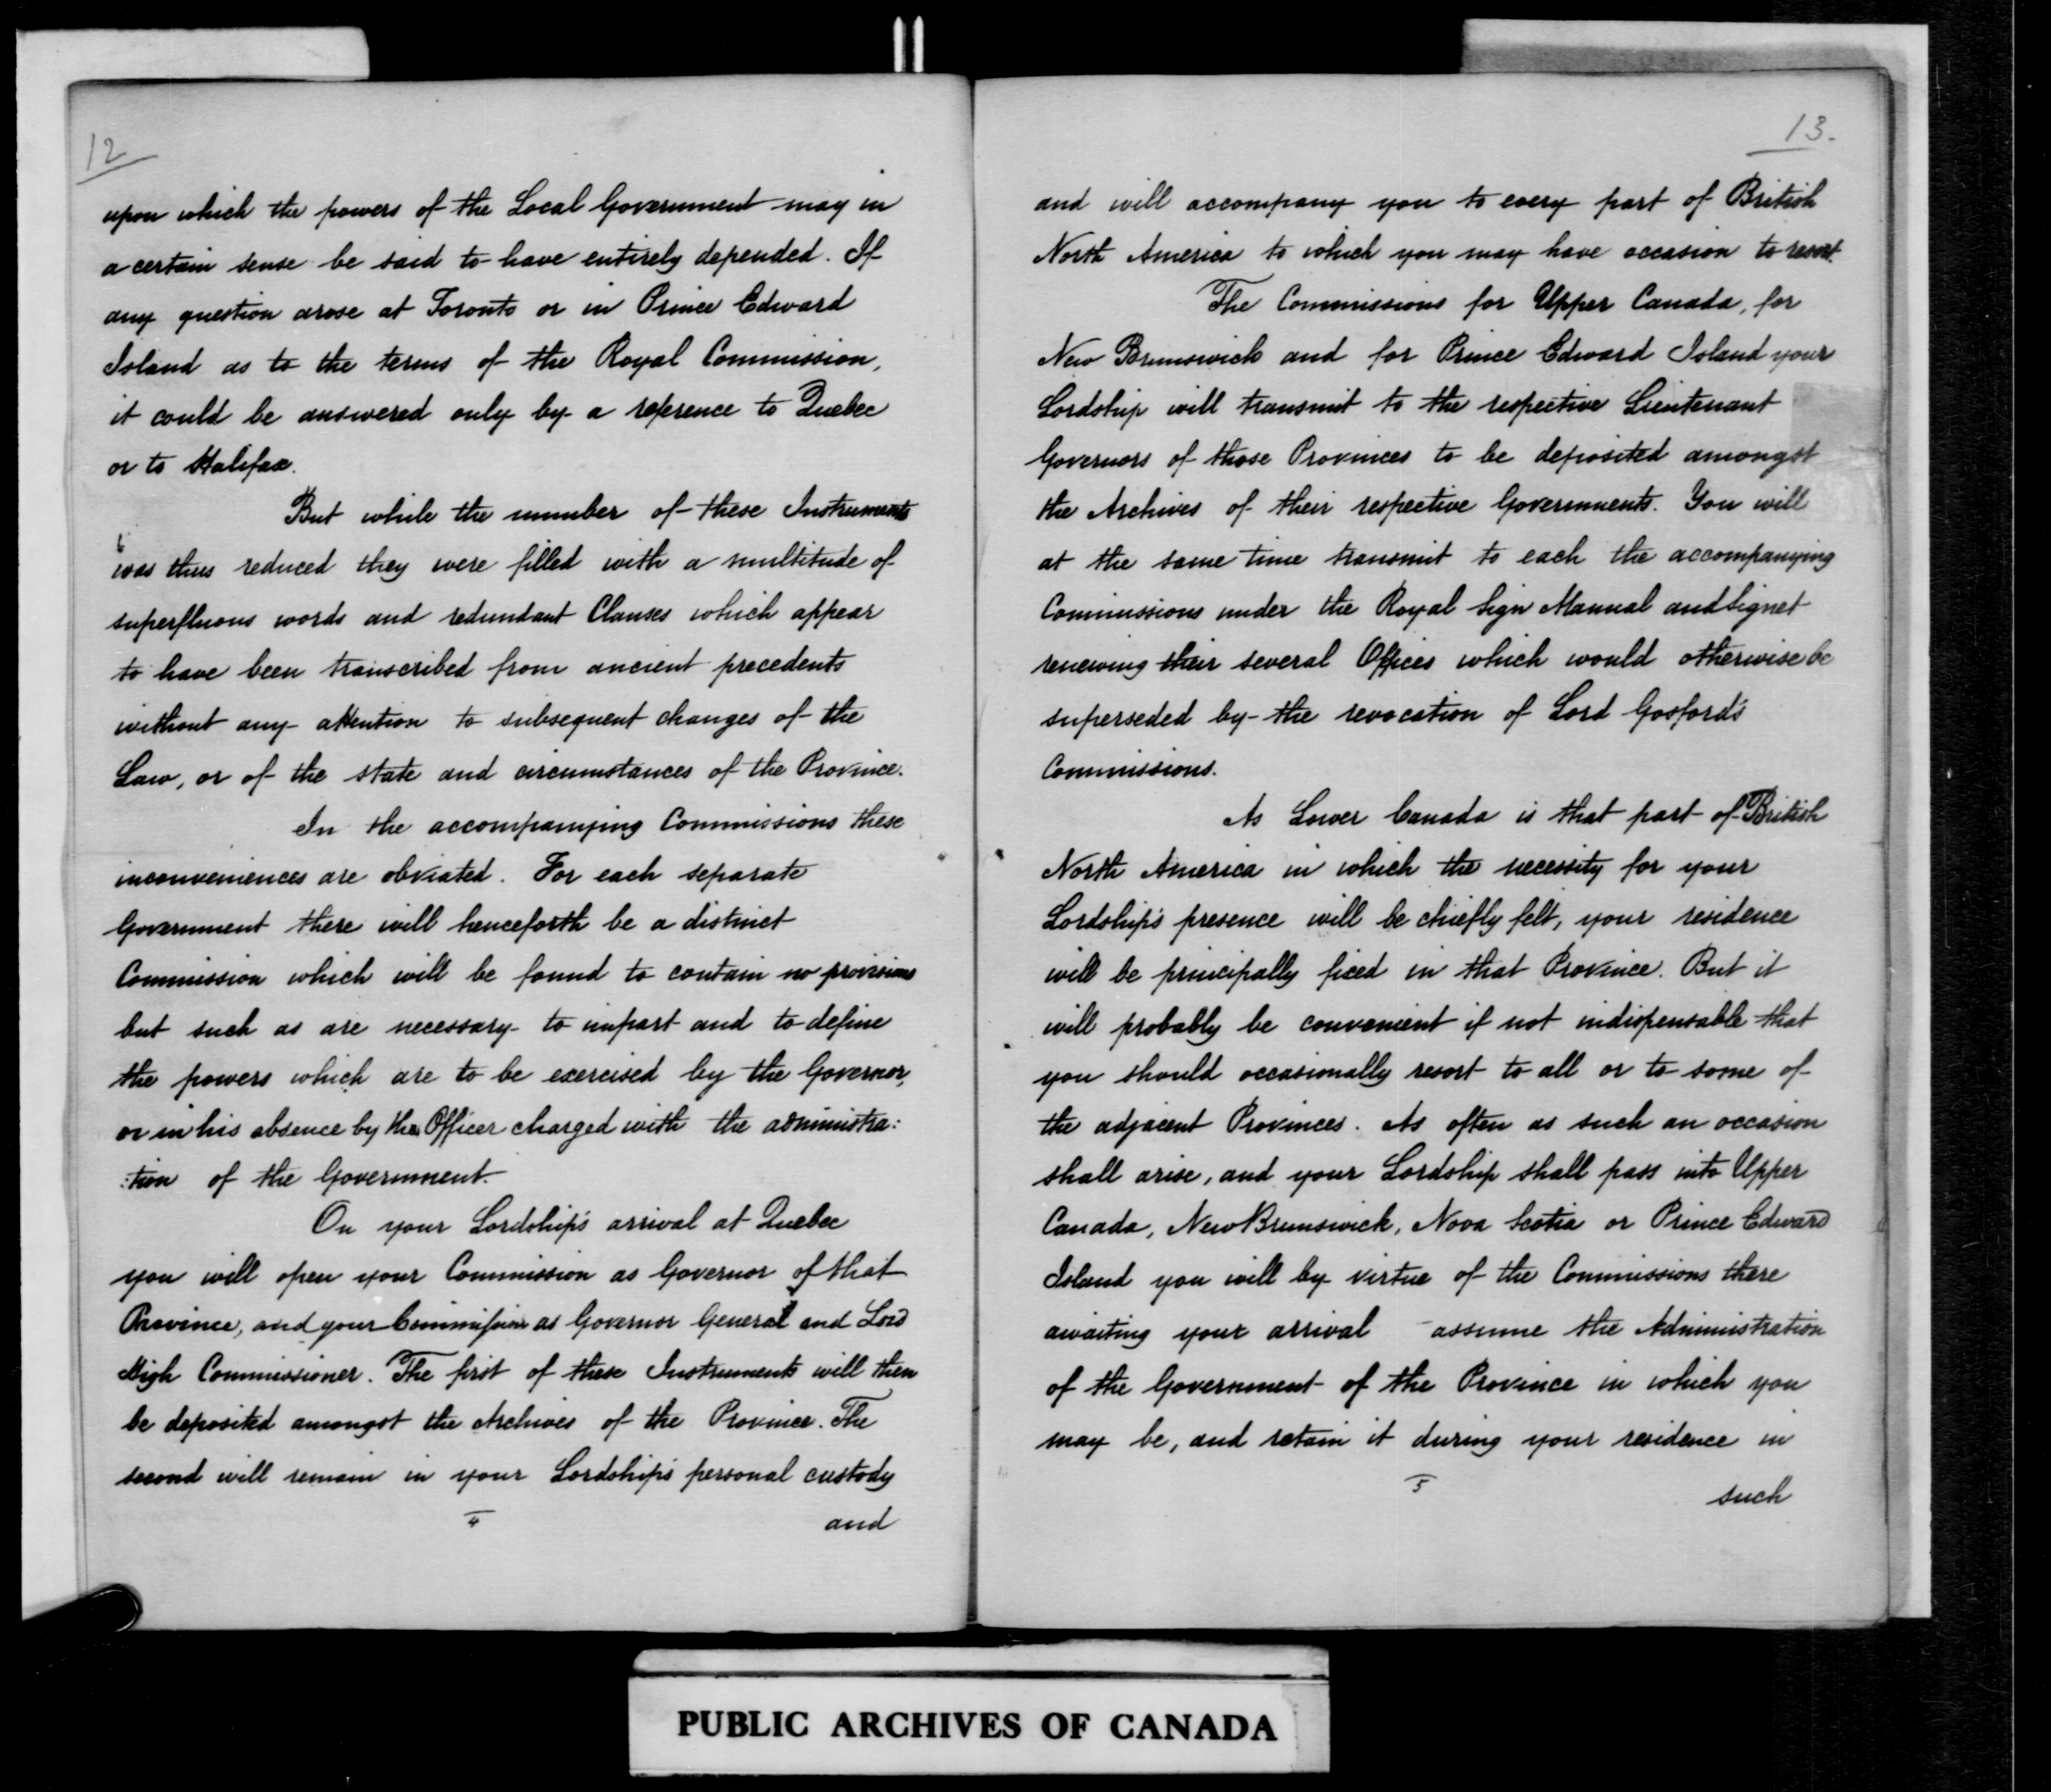 12
upon which the powers of the Local Government may in
a certain sense be said to have entirely depended. If
any question arose at Toronto or in Prince Edward
Island as to the terms of the Royal Commission,
it could be answered only by a reference to Quebec
or to Halifax.
But while the number of these Instruments
was thus reduced they were filled with a multitude of
superfluous words and redundant Clauses which appear
to have been transcribed from ancient precedents
without any attention to subsequent changes of the
Law, or of the state and circumstances of the Province.
In the accompanying Commissions these
inconveniences are obviated. For each separate
Government there will henceforth be a distinct
Commission which will be found to contain no provisions
but such as are necessary to impart and to define
the powers which are to be exercised by the Governor,
or in his absence by the Officer charged with the administra:
:tion of the Government.
On your Lordship's arrival at Quebec
you will open your Commission as Governor of that
Province, and your Commission as Governor General and Lord
High Commissioner. The first of these Instruments will then
be deposited amongst the Archives of the Province. The
second will remain in your Lordship's personal custody
4
and
13.
and will accompany you to every part of British
North America to which you may have occasion to resort.
The Commissions for Upper Canada, for
New Brunswick and for Prince Edward Island your
Lordship will transmit to the respective Lieutenant
Governors of those Provinces to be deposited amongst
the Archives of their respective Governments. You will
at the same time transmit to each the accompanying
Commissions under the Royal Sign Manual and Signet
renewing their several Offices which would otherwise be
superseded by the revocation of Lord Gosford's
Commissions.
As Lower Canada is that part of British
North America in which the necessity for your
Lordship's presence will be chiefly felt, your residence
will be principally fixed in that Province. But it
will probably be convenient if not indispensable that
you should occasionally resort to all or to some of
the adjacent Provinces. As often as such an occasion
shall arise, and your Lordship shall pass into Upper
Canada, New Brunswick, Nova Scotia or Prince Edward
Island you will by virtue of the Commissions there
awaiting your arrival assume the Administration
of the Government of the Province in which you
may be, and retain it during your residence in
5
such
PUBLIC ARCHIVES OF CANADA